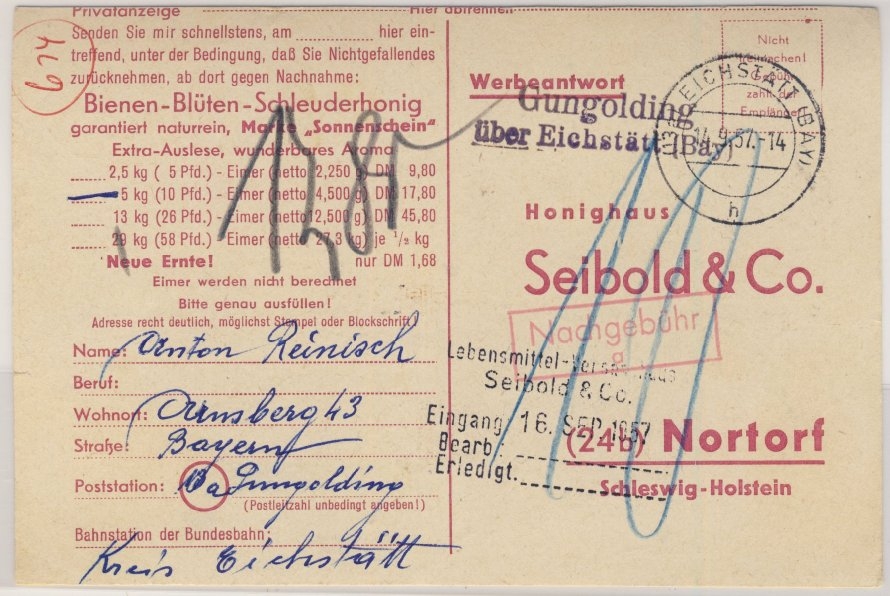 Privatanzeige
Hier abtrennen
674
Senden Sie mir schnellstens, am ............ hier ein-
treffend, unter der Bedingung, daß Sie Nichtgefallendes
zurücknehmen, ab dort gegen Nachnahme:
Bienen-Blüten-Schleuderhonig
garantiert naturrein, Marke „Sonnenschein“
Extra-Auslese, wunderbares Aroma
...... 2,5 kg ( 5 Pfd.) - Eimer (netto 2,250 g) DM 9,80
...... 5 kg (10 Pfd.) - Eimer (netto 4,500 g) DM 17,80
...... 13 kg (26 Pfd.) - Eimer (netto 12,500 g) DM 45,80
...... 29 kg (58 Pfd.) - Eimer (netto 27,3 kg) je ½ kg
Neue Ernte! nur DM 1,68
Eimer werden nicht berechnet
Bitte genau ausfüllen!
Adresse recht deutlich, möglichst Stempel oder Blockschrift!
Name: Anton Reinisch
Beruf:
Wohnort: Arnsberg 43
Straße: Bayern
Poststation: 13a Gungolding
(Postleitzahl unbedingt angeben!)
Bahnstation der Bundesbahn:
Kreis Eichstätt
Nicht
freimachen!
Gebühr
zahlt der
Empfänger
Werbeantwort
Gungolding
über Eichstätt (Bay)
EICHSTÄTT (BAY)
14.9.57.-14
h
Honighaus
Seibold & Co.
Nachgebühr
a
Lebensmittel-Versandhaus
Seibold & Co.
Eingang 16. SEP. 1957
Bearb.
Erledigt.
(24b) Nortorf
Schleswig-Holstein